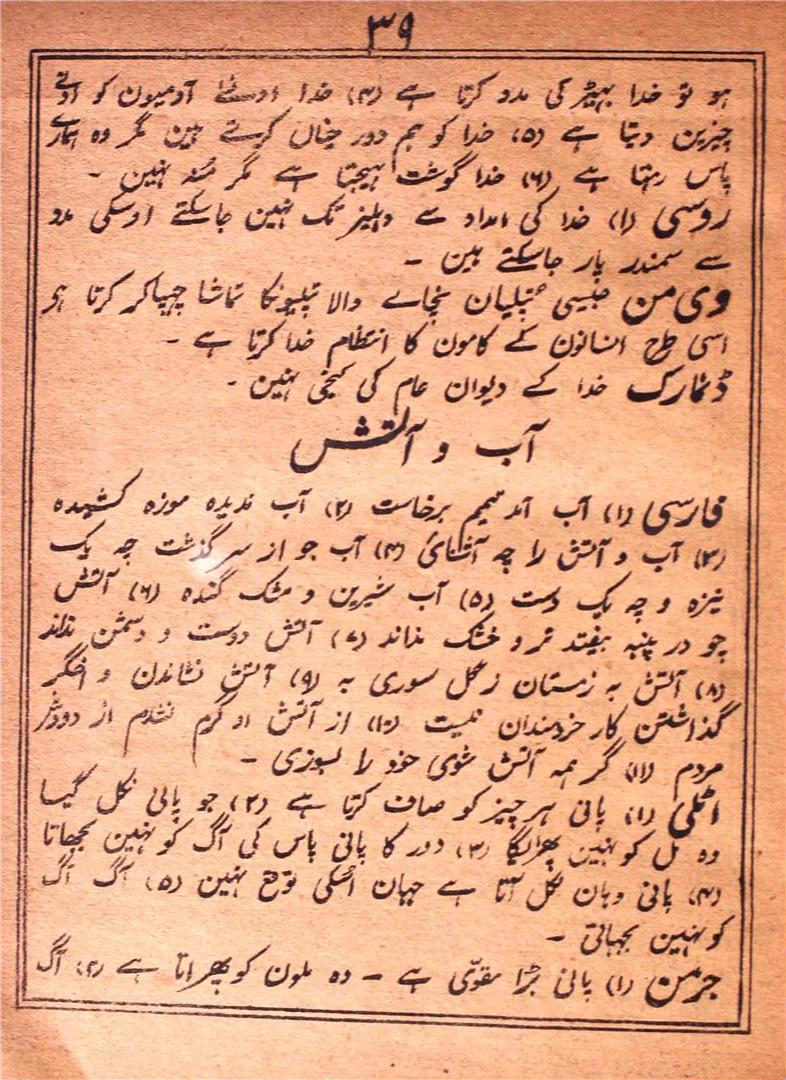 ۳۹
ہو تو خدا بہیڑ کی مدد کرتا ہے (۴) خدا اوسکے آدمیون کو اوسکے
چیزین دیتا ہے (۵) خدا کو ہم دور خیال کرتے ہین مگر وہ ہمارے
پاس رہتا ہے (۶) خدا گوشت بہیجتا ہے مگر مُنہ نہین ۔
روسی (۱) خدا کی امداد سے دہلیز تک نہین جاسکتے اوسکی مدد
سے سمندر پار جاسکتے ہین ۔
جیسی پتلیان نچانے والا پتلیونکا تماشا چہپاکر کرتا ہر
اسی طرح انسانون کے کامون کا انتظام خدا کرتا ہے ۔
ڈنمارک خدا کے دیوان عام کی کنجی نہین ۔
آب و آتش
فارسی (۱) آب آمد تیمم برخاست (۲) آب ندیدہ موزہ کشیدہ
(۳) آب و آتش را چہ آشنائی (۴) آب جو از سر گذشت چہ یک
نیزہ و چہ یک دست (۵) آب شیرین و مشک گندہ (۶) آتش
چو در پنبہ بیفتد تر و خشک نداند (۷) آتش دوست و دشمن نداند
(۸) آتش بہ زمستان ز گل سوری بہ (۹) آتش نشاندن و اخگر
گذاشتن کار خردمندان نیست (۱۰) از آتش او گرم نشدم از دودش
مردم (۱۱) گر ہمہ آتش شوی خود را بسوزی ۔
اٹلی (۱) پانی ہر چیز کو صاف کرتا ہے (۲) جو پانی نکل گیا
وہ مل کو نہین پھرائیگا (۳) دور کا پانی پاس کی آگ کو نہین بجھاتا
(۴) پانی وہان نکل آتا ہے جہان اُسکی توقع نہین (۵) آگ آگ
کو نہین بجہاتی ۔
جرمن (۱) پانی بڑا مقوّی ہے ۔ وہ ملون کو پھراتا ہے (۲) آگ